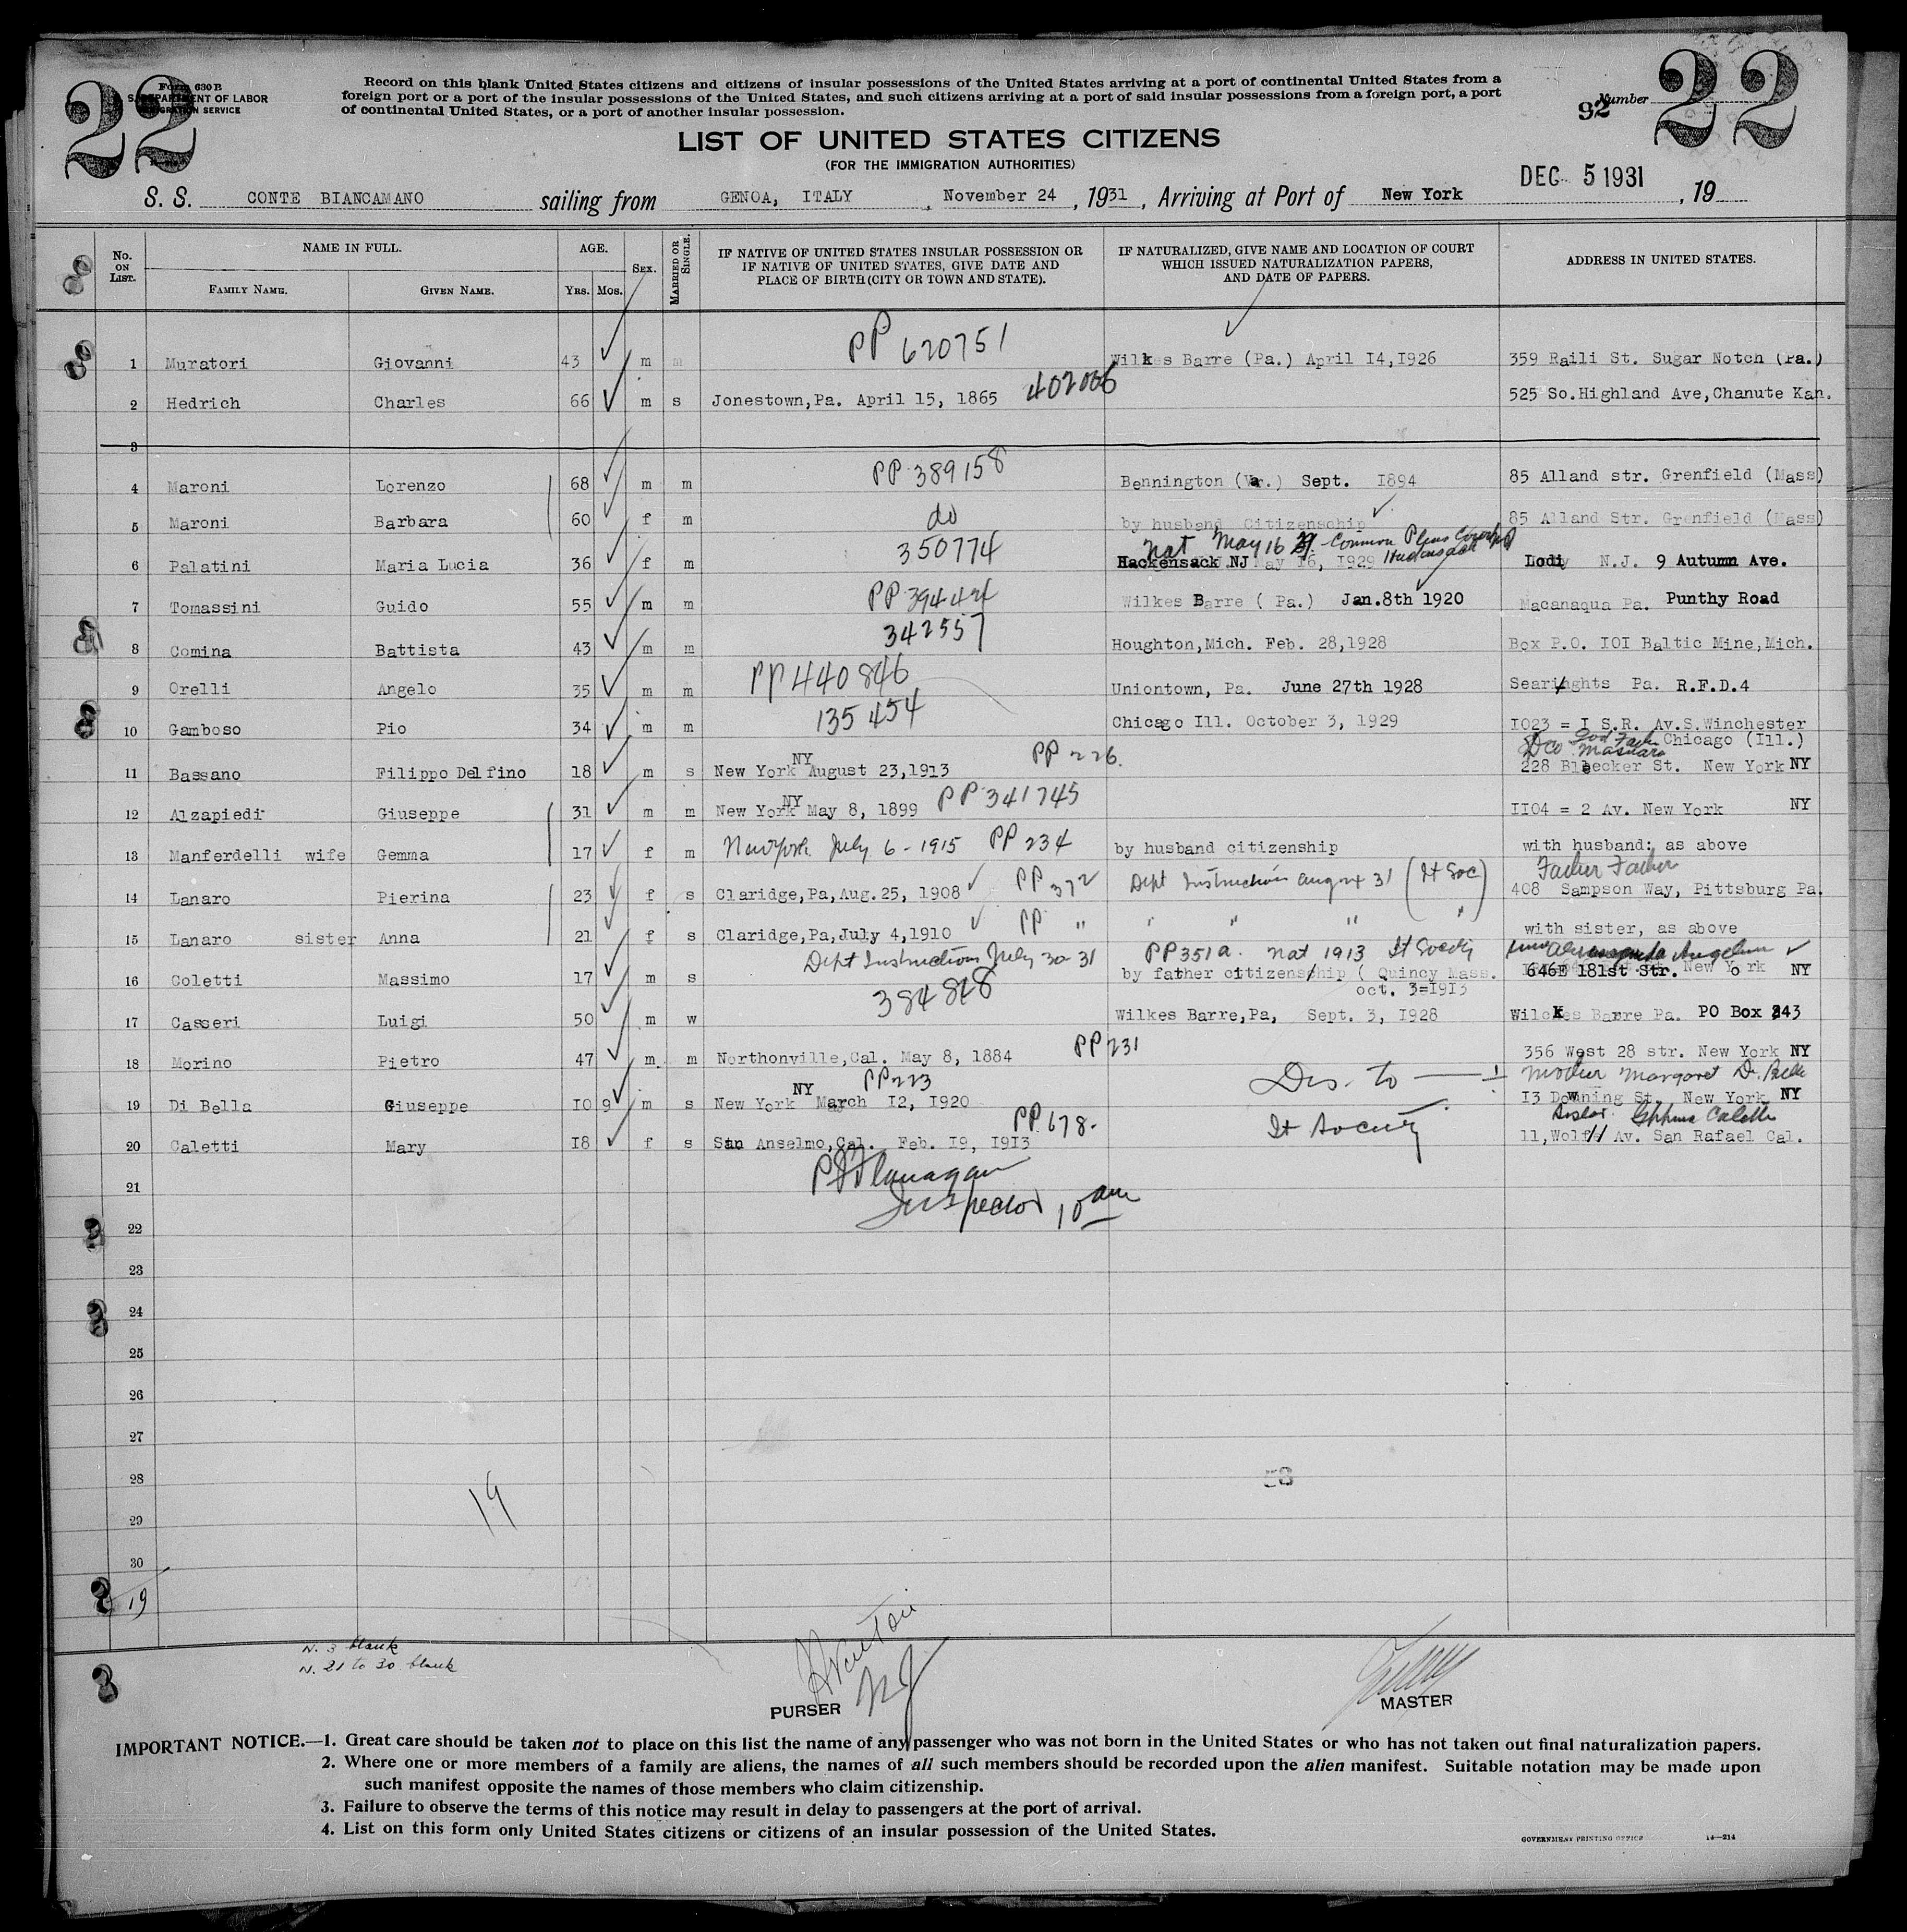 22
Form 630 E
U.S. DEPARTMENT OF LABOR
IMMIGRATION SERVICE
Record on this blank United States citizens and citizens of insular possessions of the United States arriving at a port of continental United States from a
foreign port or a port of the insular possessions of the United States, and such citizens arriving at a port of said insular possessions from a foreign port, a port
of continental United States, or a port of another insular possession.
92 Number 22
LIST OF UNITED STATES CITIZENS
(FOR THE IMMIGRATION AUTHORITIES)
S. S. CONTE BIANCAMANO sailing from GENOA, ITALY , November 24 , 1931 , Arriving at Port of New York DEC 5 1931 , 19
No. ON LIST. NAME IN FULL. FAMILY NAME. GIVEN NAME. AGE. YRS. MOS. SEX. MARRIED OR SINGLE. IF NATIVE OF UNITED STATES INSULAR POSSESSION OR IF NATIVE OF UNITED STATES, GIVE DATE AND PLACE OF BIRTH (CITY OR TOWN AND STATE). IF NATURALIZED, GIVE NAME AND LOCATION OF COURT WHICH ISSUED NATURALIZATION PAPERS, AND DATE OF PAPERS. ADDRESS IN UNITED STATES.
1 Muratori Giovanni 43 m m PP 620751 Wilkes Barre (Pa.) April 14,1926 359 Raili St. Sugar Notch (Pa.)
2 Hedrich Charles 66 m s Jonestown,Pa. April 15, 1865 402006 525 So.Highland Ave,Chanute Kan.
3
4 Maroni Lorenzo 68 m m PP 389158 Bennington (Var.) Sept. 1894 85 Alland str. Grenfield (Mass)
5 Maroni Barbara 60 f m do by husband Citizenschip 85 Alland Str. Grenfield (Mass)
nat May 16 29 - Common Pleas Court NJ
Hackensack
6 Palatini Maria Lucia 36 f m 350774 Hackensack NJ May 16, 1929 Lodi N.J. 9 Autumn Ave.
7 Tomassini Guido 55 m m PP 394424 Wilkes Barre ( Pa.) Jan.8th 1920 Macanaqua Pa. Punthy Road
8 Comina Battista 43 m m 342557 Houghton,Mich. Feb. 28,1928 Box P.O. 101 Baltic Mine,Mich.
9 Orelli Angelo 35 m m PP 440846 Uniontown, Pa. June 27th 1928 Searights Pa. R.F.D.4
10 Gamboso Pio 34 m m 135454 Chicago Ill. October 3, 1929 1023 = I S.R. Av.S.Winchester
Chicago (Ill.)
God Father
11 Bassano Filippo Delfino 18 m s New York NY August 23,1913 PP 226. 228 Bleecker St. New York NY
12 Alzapiedi Giuseppe 31 m m New York NY May 8, 1899 PP 341745 1104 = 2 Av. New York NY
13 Manferdelli wife Gemma 17 f m New York July 6 - 1915 PP 234 by husband citizenship with husband; as above
Father Father
14 Lanaro Pierina 23 f s Claridge,Pa,Aug.25, 1908 PP 372 Dept Instruction Aug 24 31 (It Soc) 408 Sampson Way, Pittsburg Pa.
15 Lanaro sister Anna 21 f s Claridge,Pa,July 4,1910 PP " " " " " with sister, as above
Dept Instructions July 30 31 PP 351a. nat 1913 It Society
16 Coletti Massimo 17 m s by father citizenship ( Quincy Mass. 646E 181st Str. New York NY
oct. 3=1913
17 Casseri Luigi 50 m w 384848 Wilkes Barre,Pa, Sept. 3, 1928 Wilckes Barre Pa. PO Box 243
18 Morino Pietro 47 m m Northonville,Cal. May 8, 1884 PP 231 356 West 28 str. New York NY
PP 223 Dis. to mother Margaret Di Bella
19 Di Bella Giuseppe 10 9 m s New York NY March 12, 1920 13 Downing St. New York NY
PP 178. It Society Sister Caletti
20 Caletti Mary 18 f s San Anselmo,Cal. Feb. 19, 1913 11,Wolf Av. San Rafael Cal.
21 P J Flanagan
Inspector 10 am
22
23
24
25
26
27
28 58
29 19
30
19
N. 3 blank
N. 21 to 30 blank
PURSER MASTER
IMPORTANT NOTICE.—1. Great care should be taken not to place on this list the name of any passenger who was not born in the United States or who has not taken out final naturalization papers.
2. Where one or more members of a family are aliens, the names of all such members should be recorded upon the alien manifest. Suitable notation may be made upon
such manifest opposite the names of those members who claim citizenship.
3. Failure to observe the terms of this notice may result in delay to passengers at the port of arrival.
4. List on this form only United States citizens or citizens of an insular possession of the United States.
GOVERNMENT PRINTING OFFICE 14—214